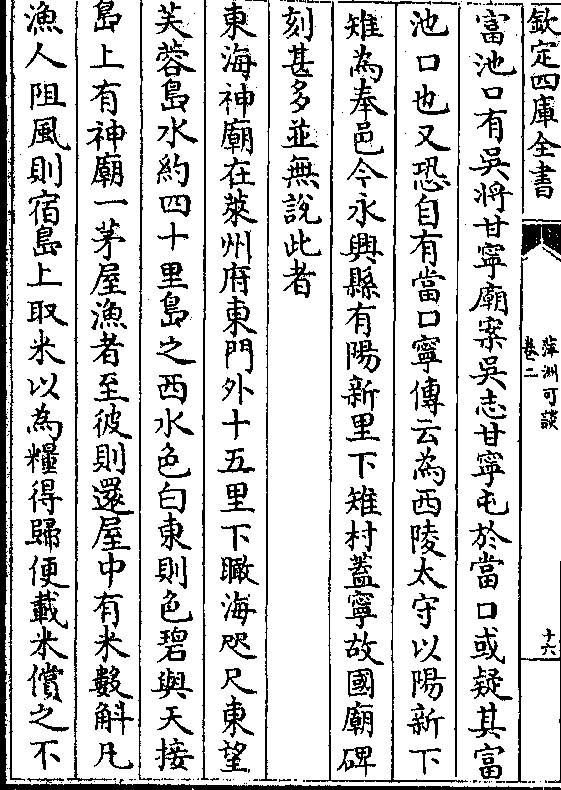 欽定四庫全書
萍洲可談
卷二
十六
富池口有吳將甘寧廟案吳志甘寧屯於當口或疑其富
池口也又恐自有當口寧傳云為西陵太守以陽新下
雉為奉邑今永興縣有陽新里下雉村蓋寧故國廟碑
刻甚多並無說此者
東海神廟在萊州府東門外十五里下瞰海咫尺東望
芙蓉島水約四十里島之西水色白東則色碧與天接
島上有神廟一茅屋漁者至彼則還屋中有米數斛凡
漁人阻風則宿島上取米以為糧得歸便載米償之不